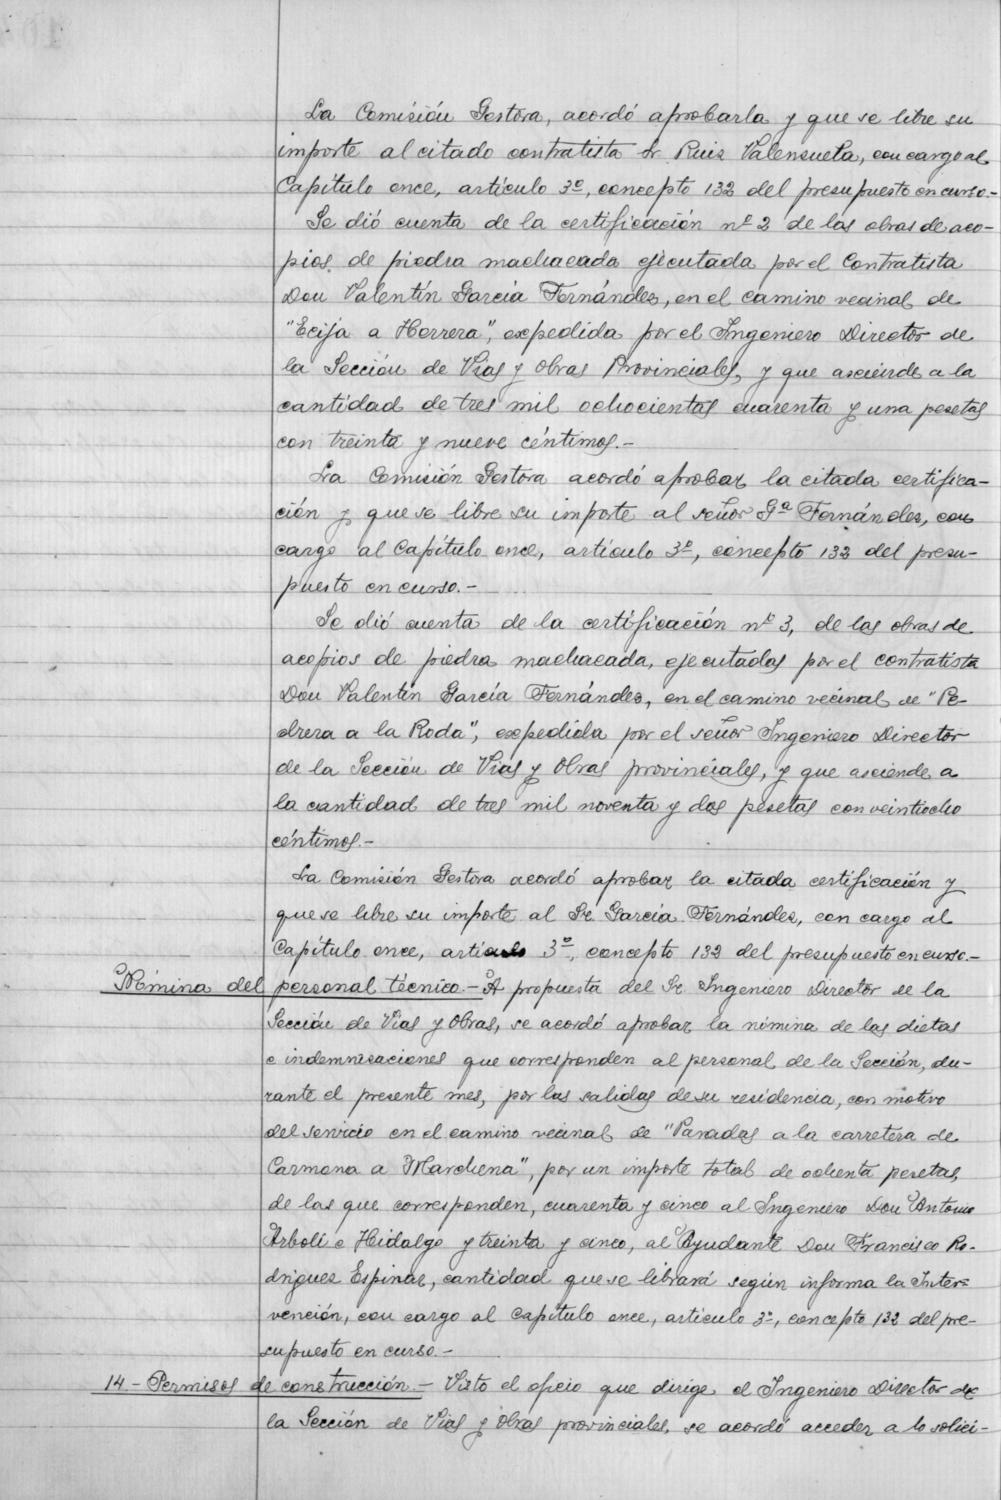 La Comisión Gestora, acordó aprobarla y que se libre su
importe al citado contratista Sr. Ruiz Valenzuela, con cargo al
Capítulo once, artículo 3º, concepto 132 del presupuesto en curso.-
Se dió cuenta de la certificación nº 2 de las obras de aco-
pios de piedra machacada ejecutada por el Contratista
Don Valentín García Fernández, en el camino vecinal de
"Ecija a Herrera", expedida por el Ingeniero Director de
la Sección de Vías y Obras Provinciales, y que asciende a la
cantidad de tres mil ochocientas cuarenta y una pesetas
con treinta y nueve céntimos.-
La Comisión Gestora acordó aprobar la citada certifica-
ción y que se libre su importe al señor Gª Fernández, con
cargo al Capítulo once, artículo 3º, concepto 132 del presu-
puesto en curso.-
Se dió cuenta de la certificación nº 3, de las obras de
acopios de piedra machacada, ejecutadas por el contratista
Don Valentín García Fernández, en el camino vecinal de "Pe-
drera a la Roda", expedida por el señor Ingeniero Director
de la Sección de Vías y Obras provinciales, y que asciende a
la cantidad de tres mil noventa y dos pesetas con veintiocho
céntimos.-
La Comisión Gestora acordó aprobar la citada certificación y
que se libre su importe al Sr. García Fernández, con cargo al
Capítulo once, artículo 3º, concepto 132 del presupuesto en curso.-
Nómina del personal técnico.- A propuesta del Sr. Ingeniero Director de la
Sección de Vías y Obras, se acordó aprobar la nómina de las dietas
e indemnizaciones que corresponden al personal de la Sección, du-
rante el presente mes, por las salidas de su residencia, con motivo
del servicio en el camino vecinal de "Paradas a la carretera de
Carmona a Marchena", por un importe total de ochenta pesetas,
de las que corresponden, cuarenta y cinco al Ingeniero Don Antonio
Arbolí e Hidalgo y treinta y cinco, al Ayudante Don Francisco Ro-
dríguez Espinar, cantidad que se librará según informa la Inter-
vención, con cargo al Capítulo once, artículo 3º, concepto 132 del pre-
supuesto en curso.-
14.- Permisos de construcción.- Visto el oficio que dirige el Ingeniero Director de
la Sección de Vías y Obras provinciales, se acordó acceder a lo solici-